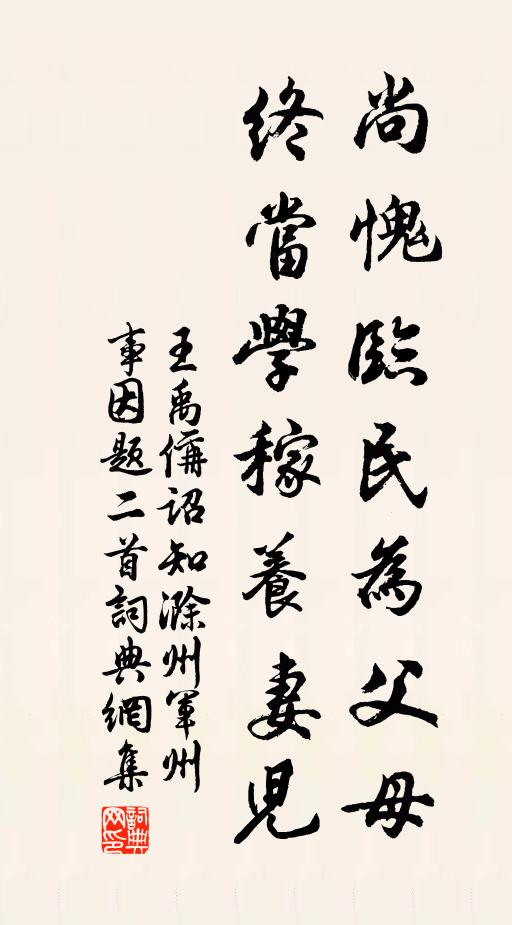 尚愧臨民為父母
終當學稼養妻兒
王禹偁詔知滁州軍州
事因題二首詞典網集
詞典
网印